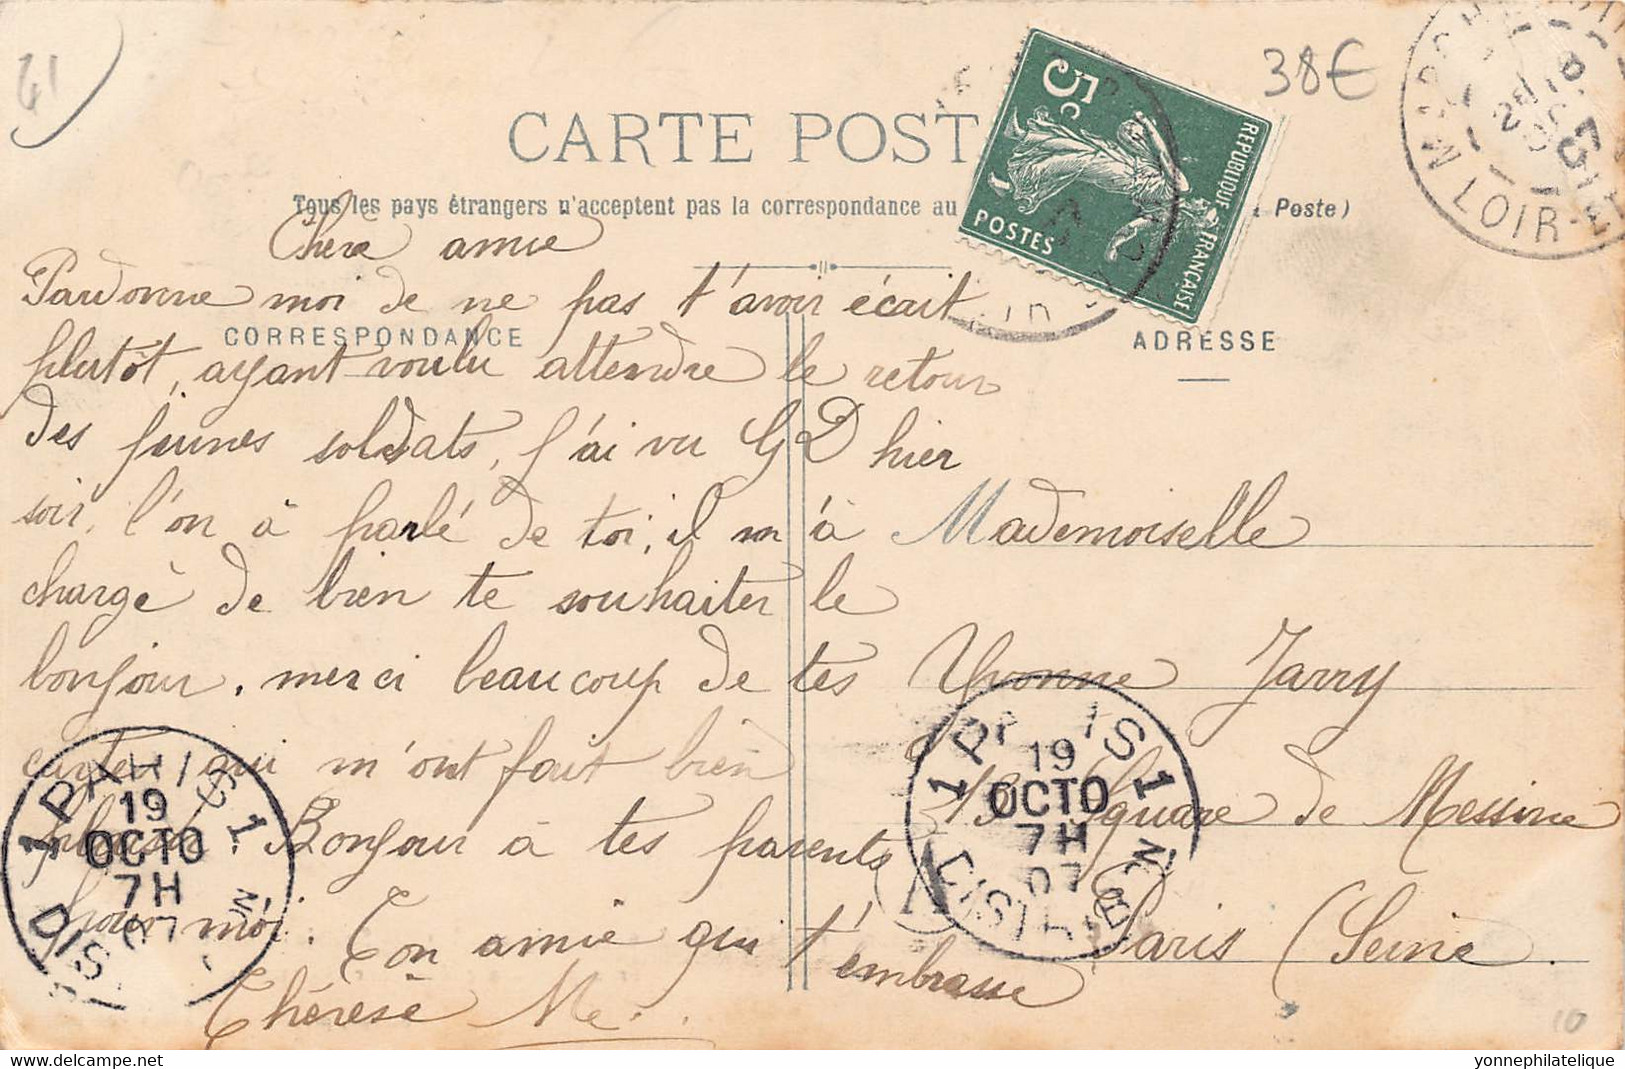 41
38€
CARTE POST
Tous les pays étrangers n'acceptent pas la correspondance au Poste)
5c
REPUBLIQUE FRANÇAISE
POSTES
LOIR-E
CORRESPONDANCE
ADRESSE
Chère amie
Pardonne moi de ne pas t'avoir écrit
plutôt, ayant voulu attendre le retour
des jeunes soldats, j'ai vu G D hier
soir, l'on à parlé de toi, il m'à
chargé de bien te souhaiter le
bonjour, merci beaucoup de tes
cartes qui m'ont fait bien
plaisir. Bonjour à tes parents
pour moi. Ton amie qui t'embrasse
Thérèse M.
Mademoiselle
Yvonne Jarry
Square de Messine
Paris (Seine).
1 PARIS 1
19
OCTO
7H
07
DISTRIB
1 P IS 1
19
OCTO
7H
07
DISTRIB
10
yonnephilatelique